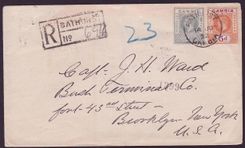 BATHURST
R
No 696
23
GAMBIA
GAMBIA
Capt. J. H. Ward
Bush Terminal Co.
foot 43rd Street
Brooklyn New York
U.S.A.